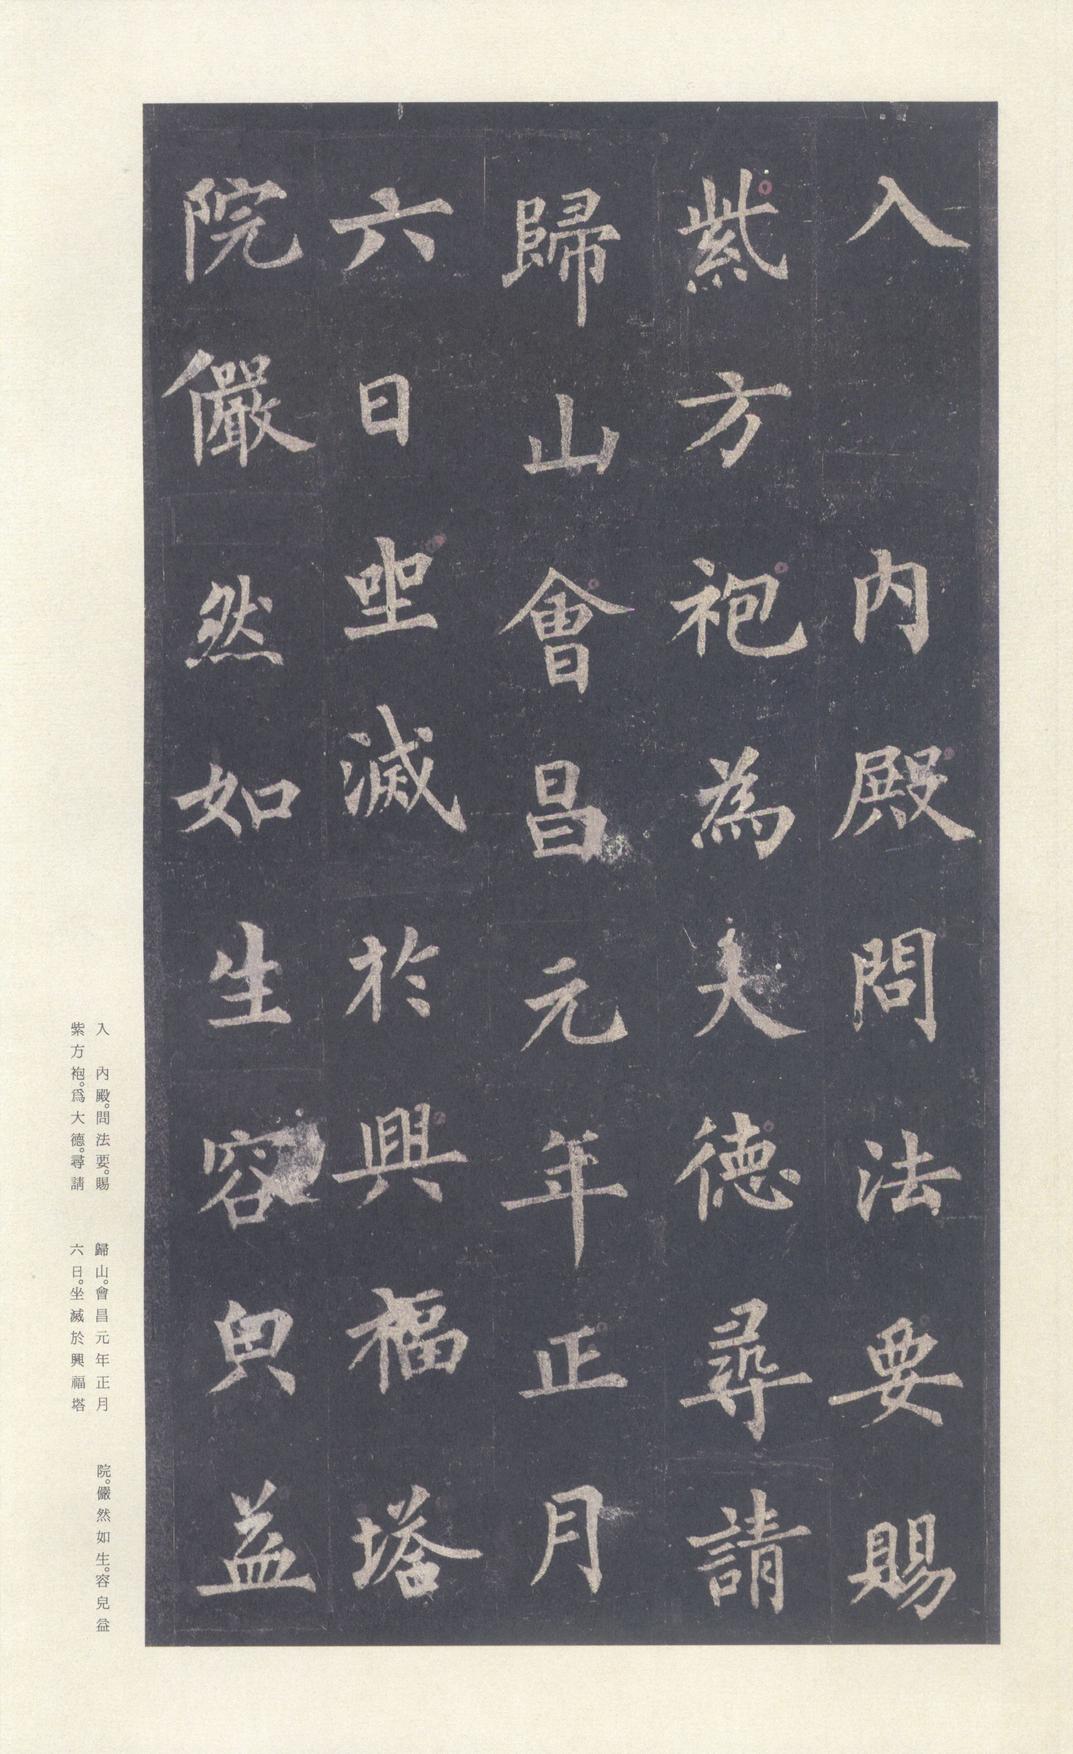 入　内殿問法要賜
紫方袍為大德尋請
歸山會昌元年正月
六日坐滅於興福塔
院儼然如生容皃益
入　內殿。問法要。賜
紫方袍。爲大德。尋請
歸山。會昌元年正月
六日。坐滅於興福塔
院。儼然如生。容皃益